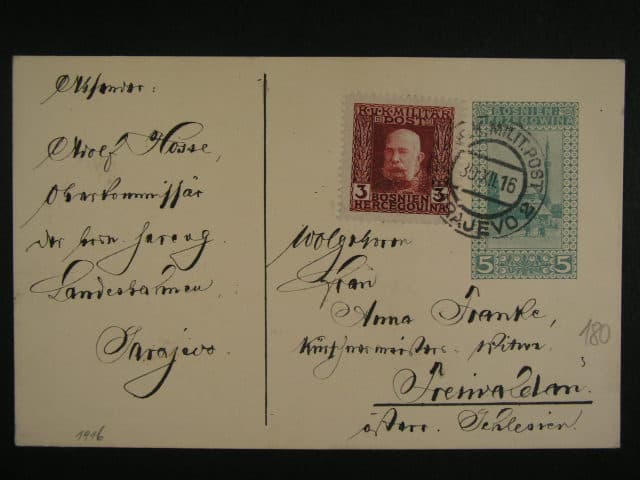 Absender:
Adolf Hosse,
Oberkommissär
der bosn. herzeg.
Landesbahnen
Sarajevo.
1916
K.u.K. MILITÄR
POST
3 3
BOSNIEN
HERCEGOVINA
BOSNIEN
HERCEGOVINA
5 5
K.u.K. MILIT. POST
30.XII.16
SARAJEVO 2
Wolgeboren
Frau
Anna Franke,
Kürschnermeisters-Witwe
Freiwaldau.
österr. Schlesien.
180